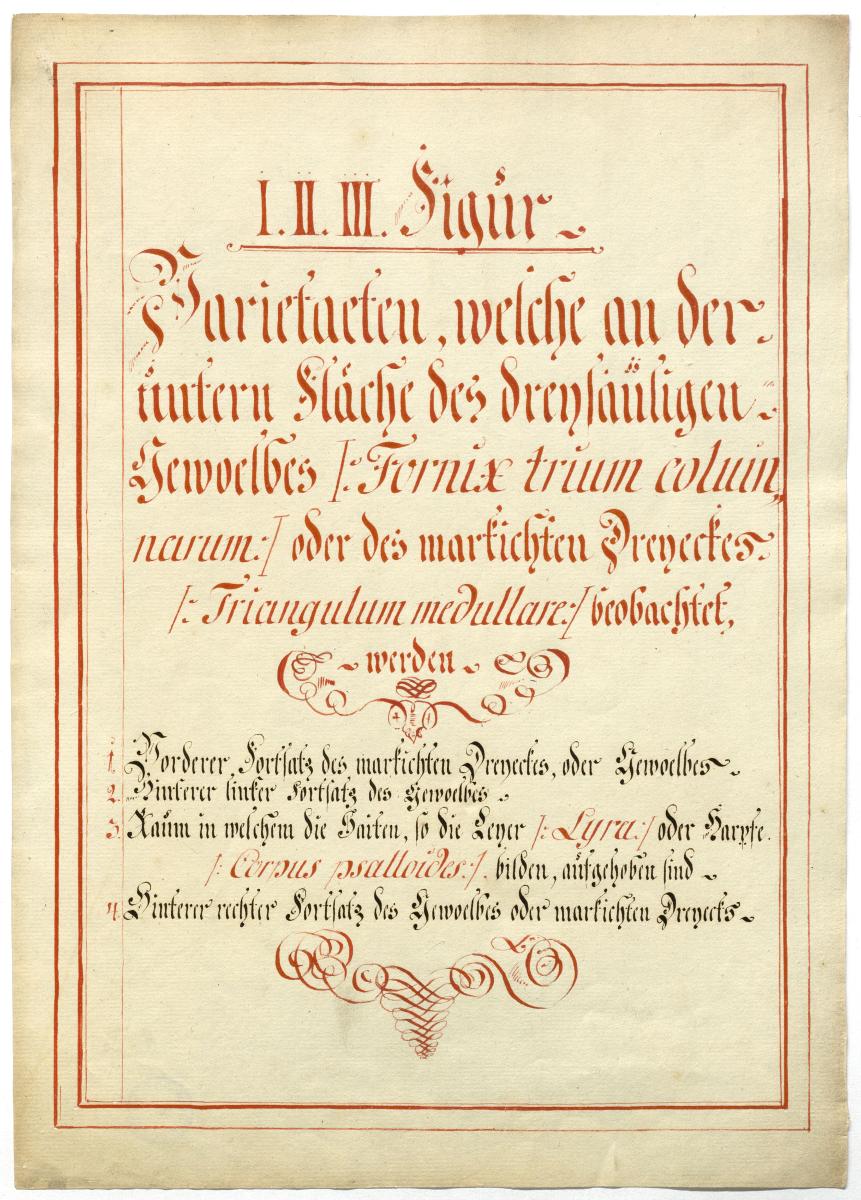 I. II. III. Figur
Varietaeten, welche an der
untern Fläche des dreysäuligen
Gewoelbes /: Fornix trium colum„
narum :/ oder des markichten Dreyeckes
/: Triangulum medullare :/ beobachtet,
werden
1. Vorderer Fortsatz des markichten Dreyeckes, oder Gewoelbes
2. Hinterer linker Fortsatz des Gewoelbes
3. Raum in welchem die Saiten, so die Leyer /: Lyra :/ oder Harpfe
/: Corpus psalloides :/. bilden, aufgehoben sind
4. Hinterer rechter Fortsatz des Gewoelbes oder markichten Dreyecks